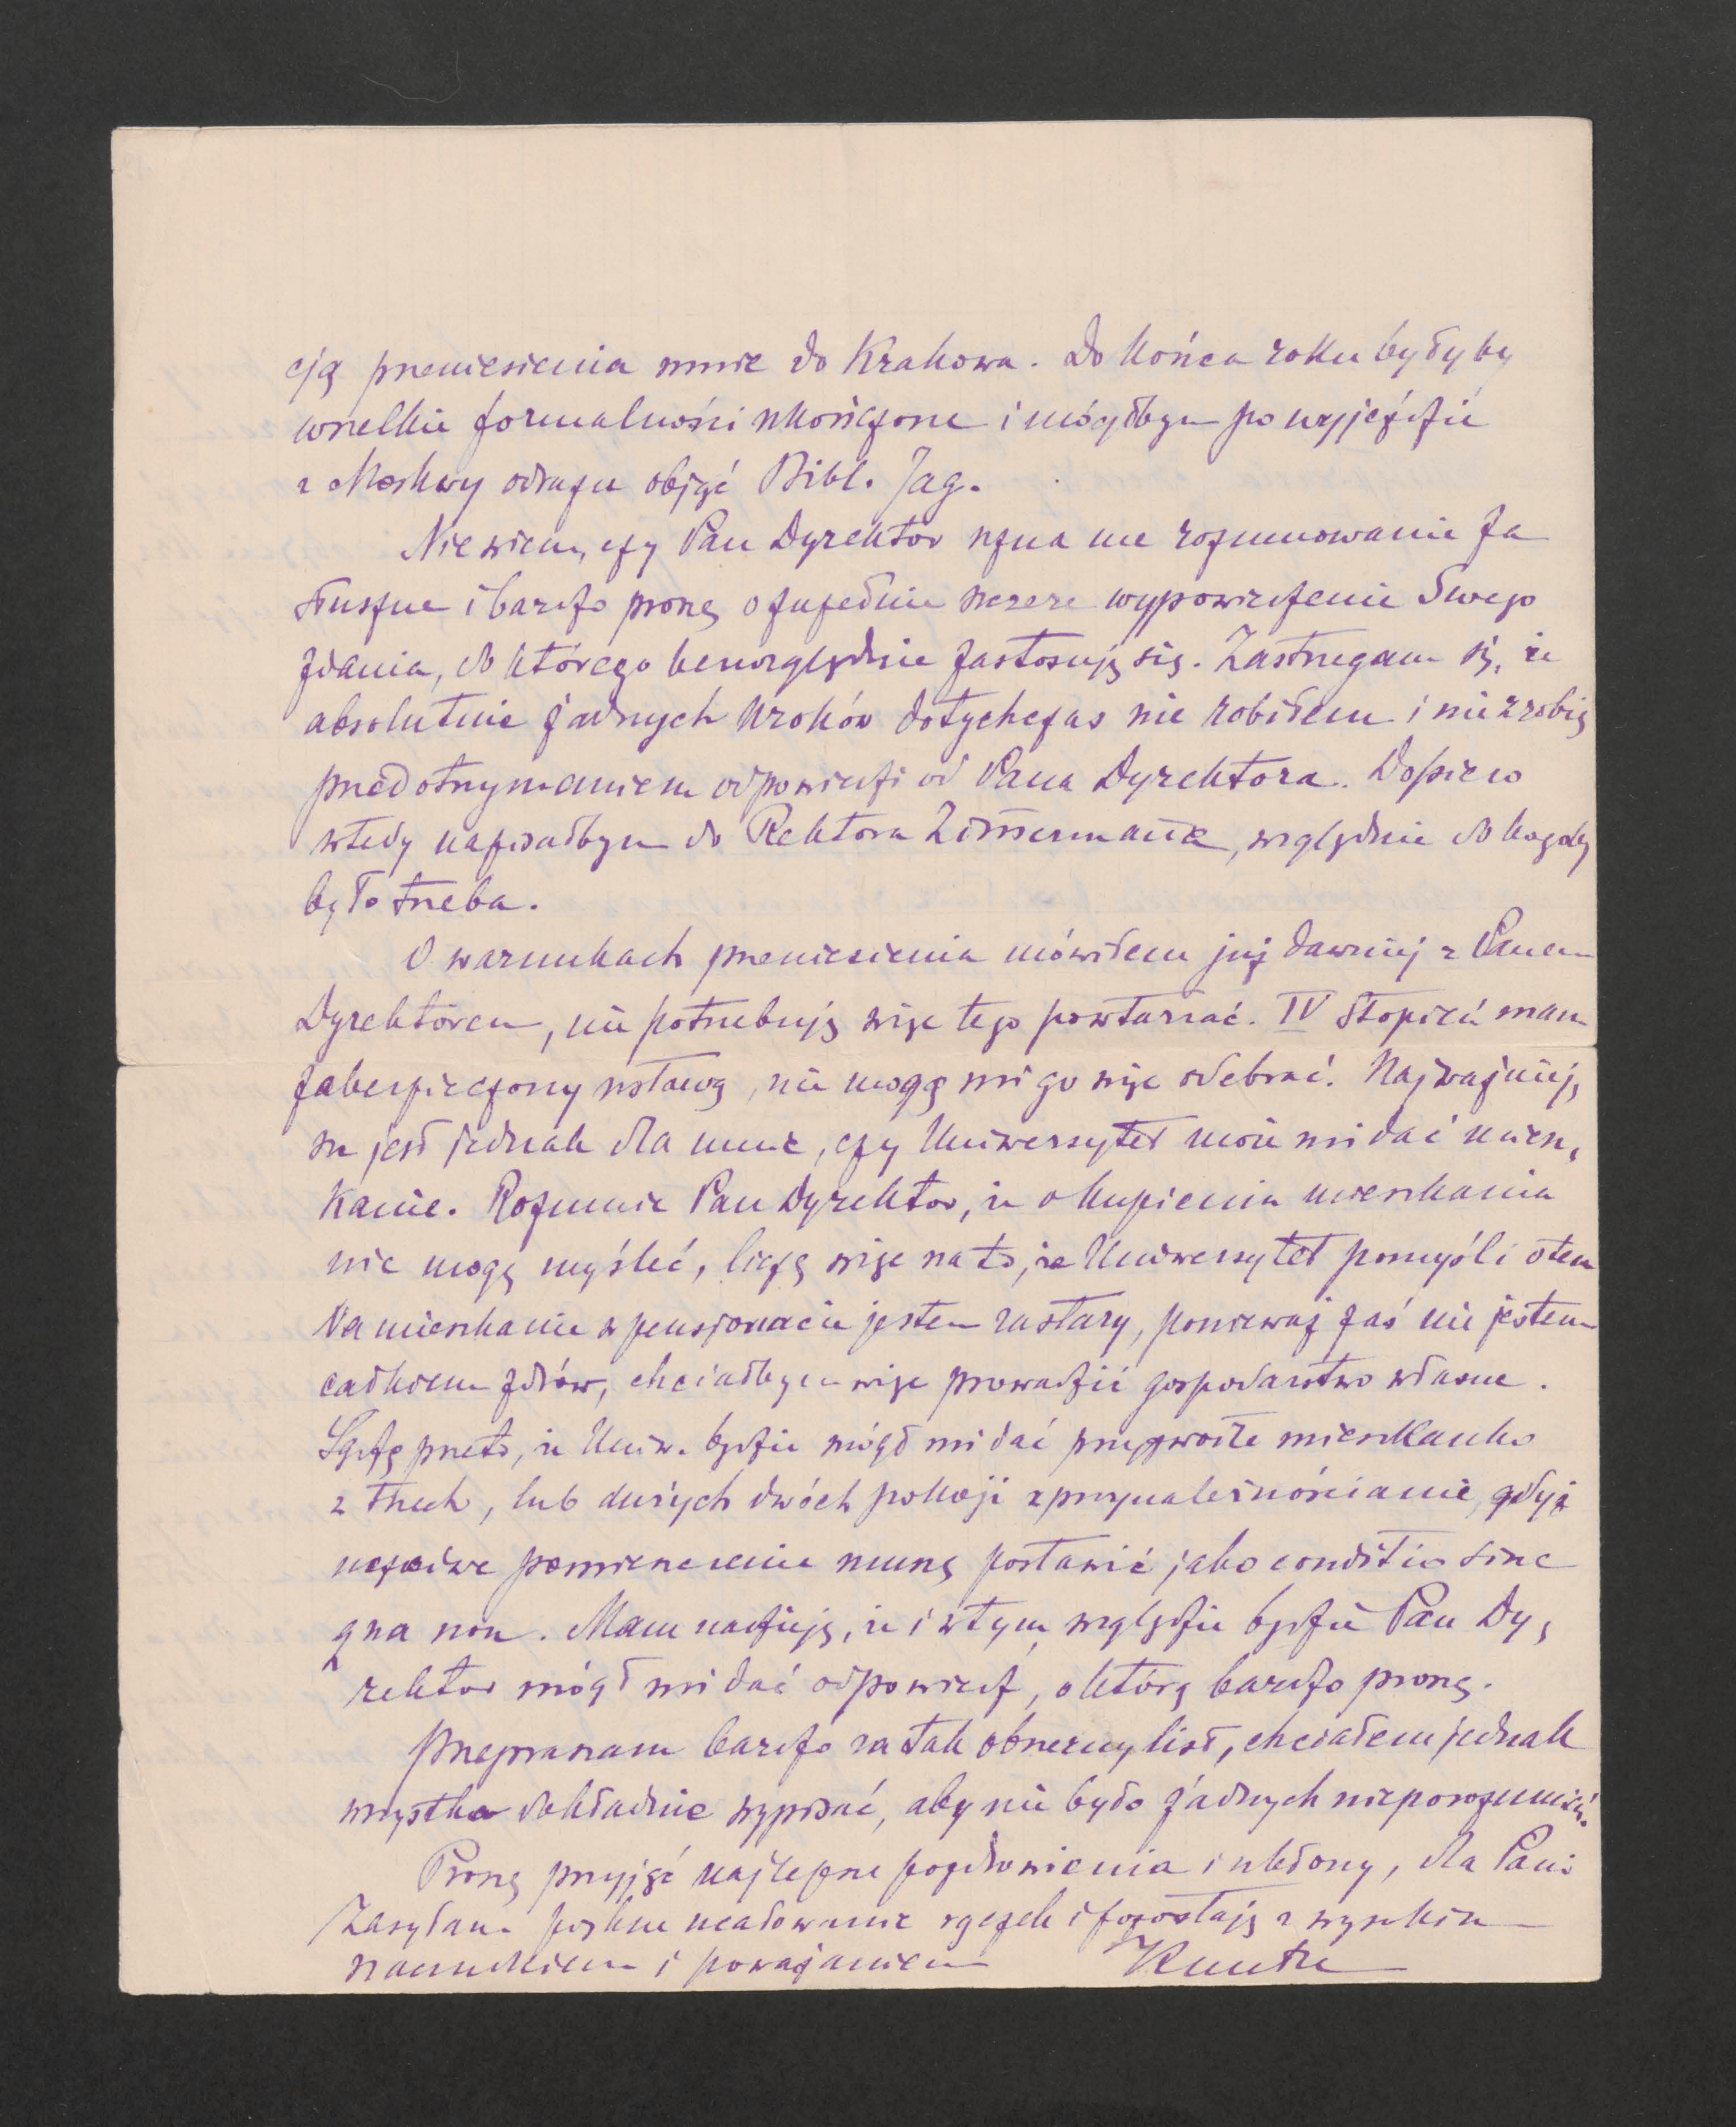 cją przeniesienia mnie do Krakowa. Do końca roku byłyby
wszelkie formalności skończone i mógłbym po wyjeździe
z Moskwy odrazu objąć Bibl. Jag.
Nie wiem, czy Pan Dyrektor uzna me rozumowanie za
słuszne i bardzo proszę o zupełnie szczere wypowiedzenie Swego
zdania, do którego bezwzględnie zastosuję się. Zastrzegam się, że
absolutnie żadnych kroków dotychczas nie robiłem i nie zrobię
przed otrzymaniem odpowiedzi od Pana Dyrektora. Dopiero
wtedy napisałbym do Rektora Zimmermanna, względnie do kogoby
było trzeba.
O warunkach przeniesienia mówiłem już dawniej z Panem
Dyrektorem, nie potrzebuję więc tego powtarzać. IV stopień mam
zabezpieczony ustawą, nie mogą mi go więc odebrać. Najważniej,
sze jest jednak dla mnie, czy Uniwersytet może mi dać miesz,
kanie. Rozumie Pan Dyrektor, że o kupieniu mieszkania
nie mogę myśleć, liczę więc na to, że Uniwersytet pomyśli o tem
Na mieszkanie w pensjonacie jestem za stary, ponieważ zaś nie jestem
całkiem zdrów, chciałbym więc prowadzić gospodarstwo własne.
Sądzę przeto, że Uniw. będzie mógł mi dać przyzwoite mieszkanko
z trzech, lub dużych dwóch pokoji z przynależnościami, gdyż
uczciwe pomieszczenie muszę postawić jako conditio sine
qua non. Mam nadzieję, że i w tym względzie będzie Pan Dy,
rektor mógł mi dać odpowiedź, o którą bardzo proszę.
Przepraszam bardzo za tak obszerny list, chciałem jednak
wszystko dokładnie wypisać, aby nie było żadnych nieporozumień.
Proszę przyjąć najlepsze pozdrowienia i ukłony, dla Pani
Zasyłam piękne ucałowanie rączek i pozostaję z wysokim
szacunkiem i poważaniem Kuntze